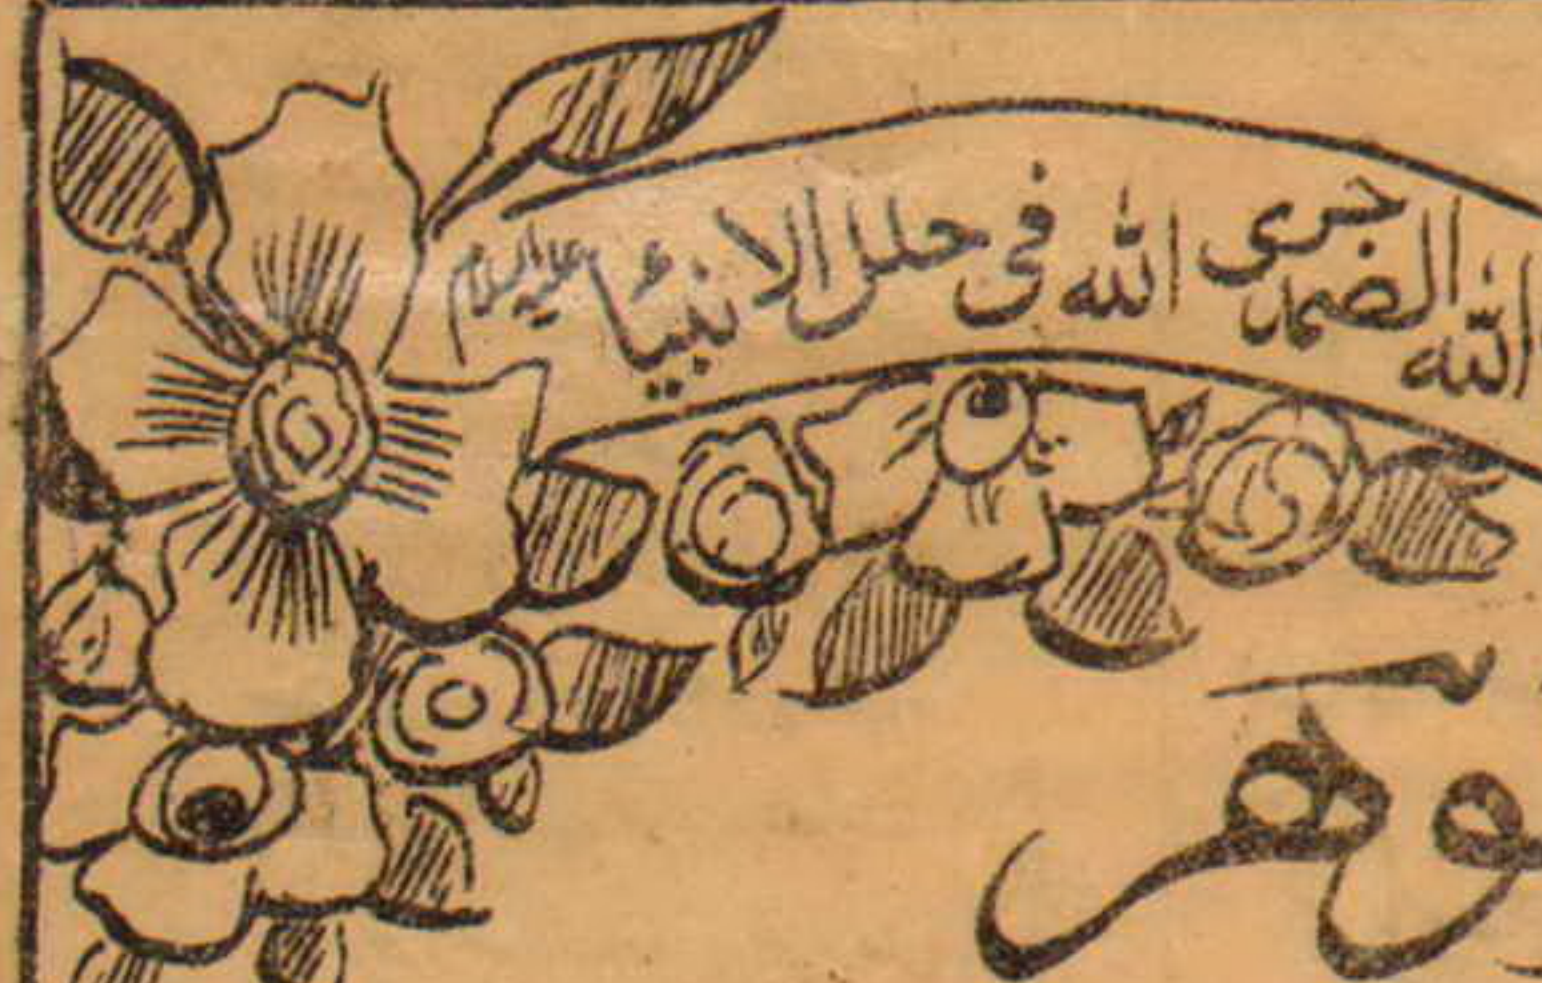 الله الصمد جری الله فی حلل الانبیآء علیہ السلام